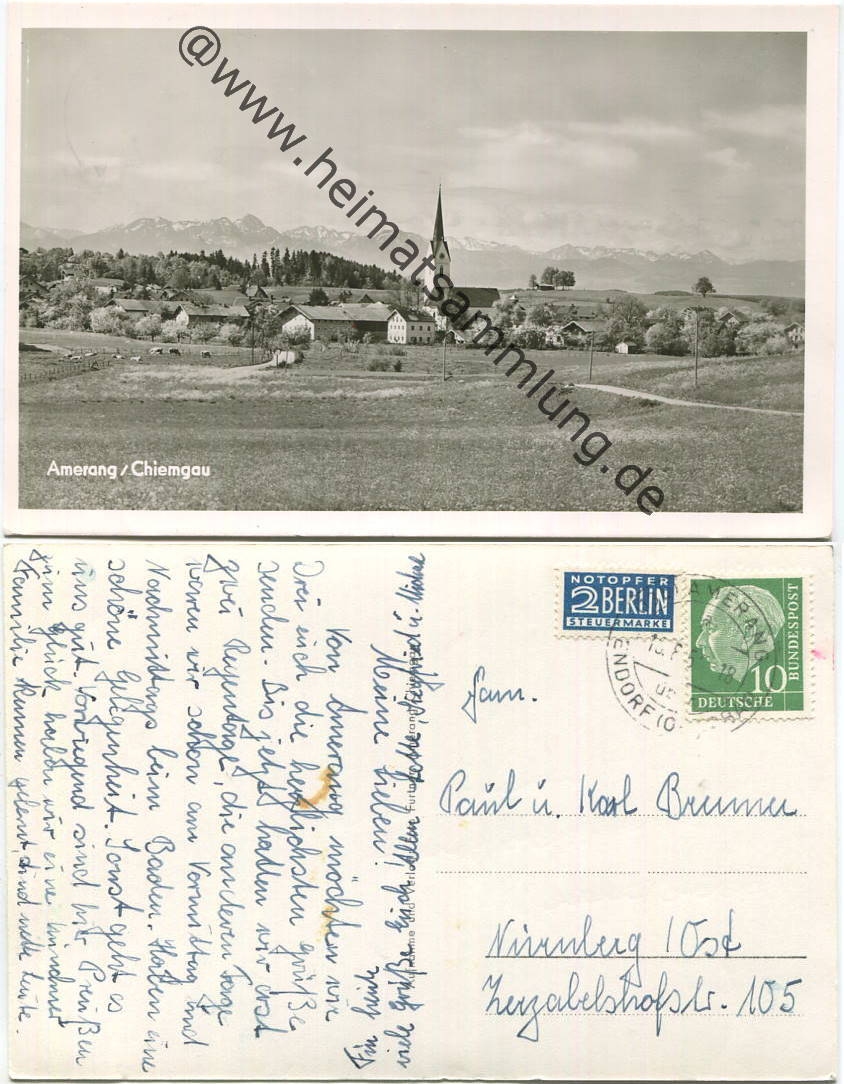 @www.heimatsammlung.de
Amerang/Chiemgau
Meine Lieben!
Von Amerang möchten wir
Drei euch die herzlichsten Grüße
senden. Bis jetzt hatten wir erst
zwei Regentage, die anderen Tage
waren wir schon am Vormittag und
Nachmittags beim Baden. Haben eine
schöne Gelegenheit. Sonst geht es
uns gut. Vorwigend sind hir Preußen
zum Glück haben wir eine
Familie kennen gelernt, sind nette Leute.
viele Grüße Euch Allen
NOTOPFER
2 BERLIN
STEUERMARKE
AMERANG
ENDORF (O
18
10
DEUTSCHE
BUNDESPOST
Fam.
Paul u. Karl Brunner
Nürnberg / Ost
Zerzabelshofstr. 105